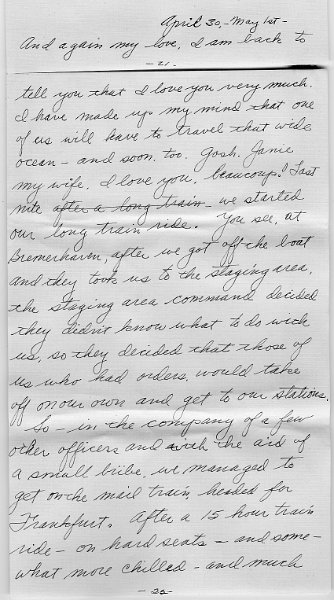 April 30, - May 1st -
And again my love, I am back to
- 21. -
tell you that I love you very much.
I have made up my mind that one
of us will have to travel that wide
ocean - and soon, too. Gosh, Janie
my wife, I love you, beaucoup! Last
nite after a long train we started
our long train ride. You see, at
Bremerhaven, after we got off the boat
and they took us to the staging area,
the staging area command decided
they didn't know what to do with
us, so they decided that those of
us who had orders, would take
off on our own and get to our stations.
So - in the company of a few
other officers and with the aid of
a small bribe, we managed to
get on the mail train headed for
Frankfurt. After a 15 hour train
ride - on hard seats - and some-
what more chilled - and much
- 22 -